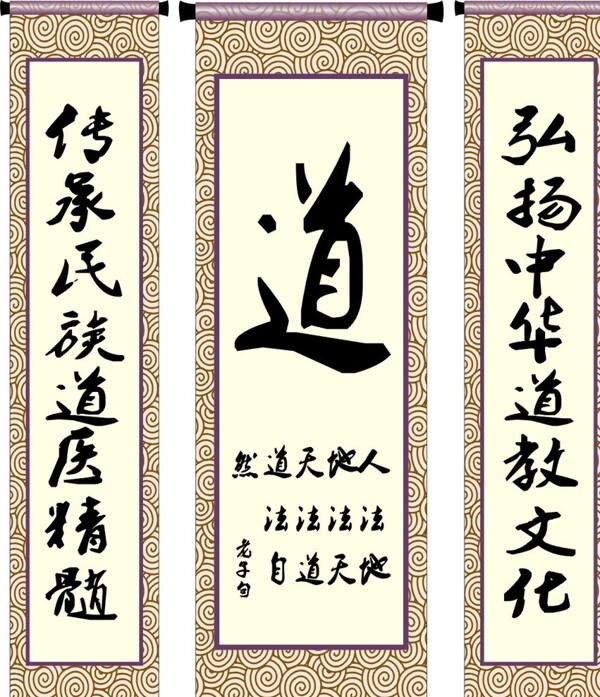 弘扬中华道教文化
道
人法地
地法天
天法道
道法自
然
老子句
传承民族道医精髓